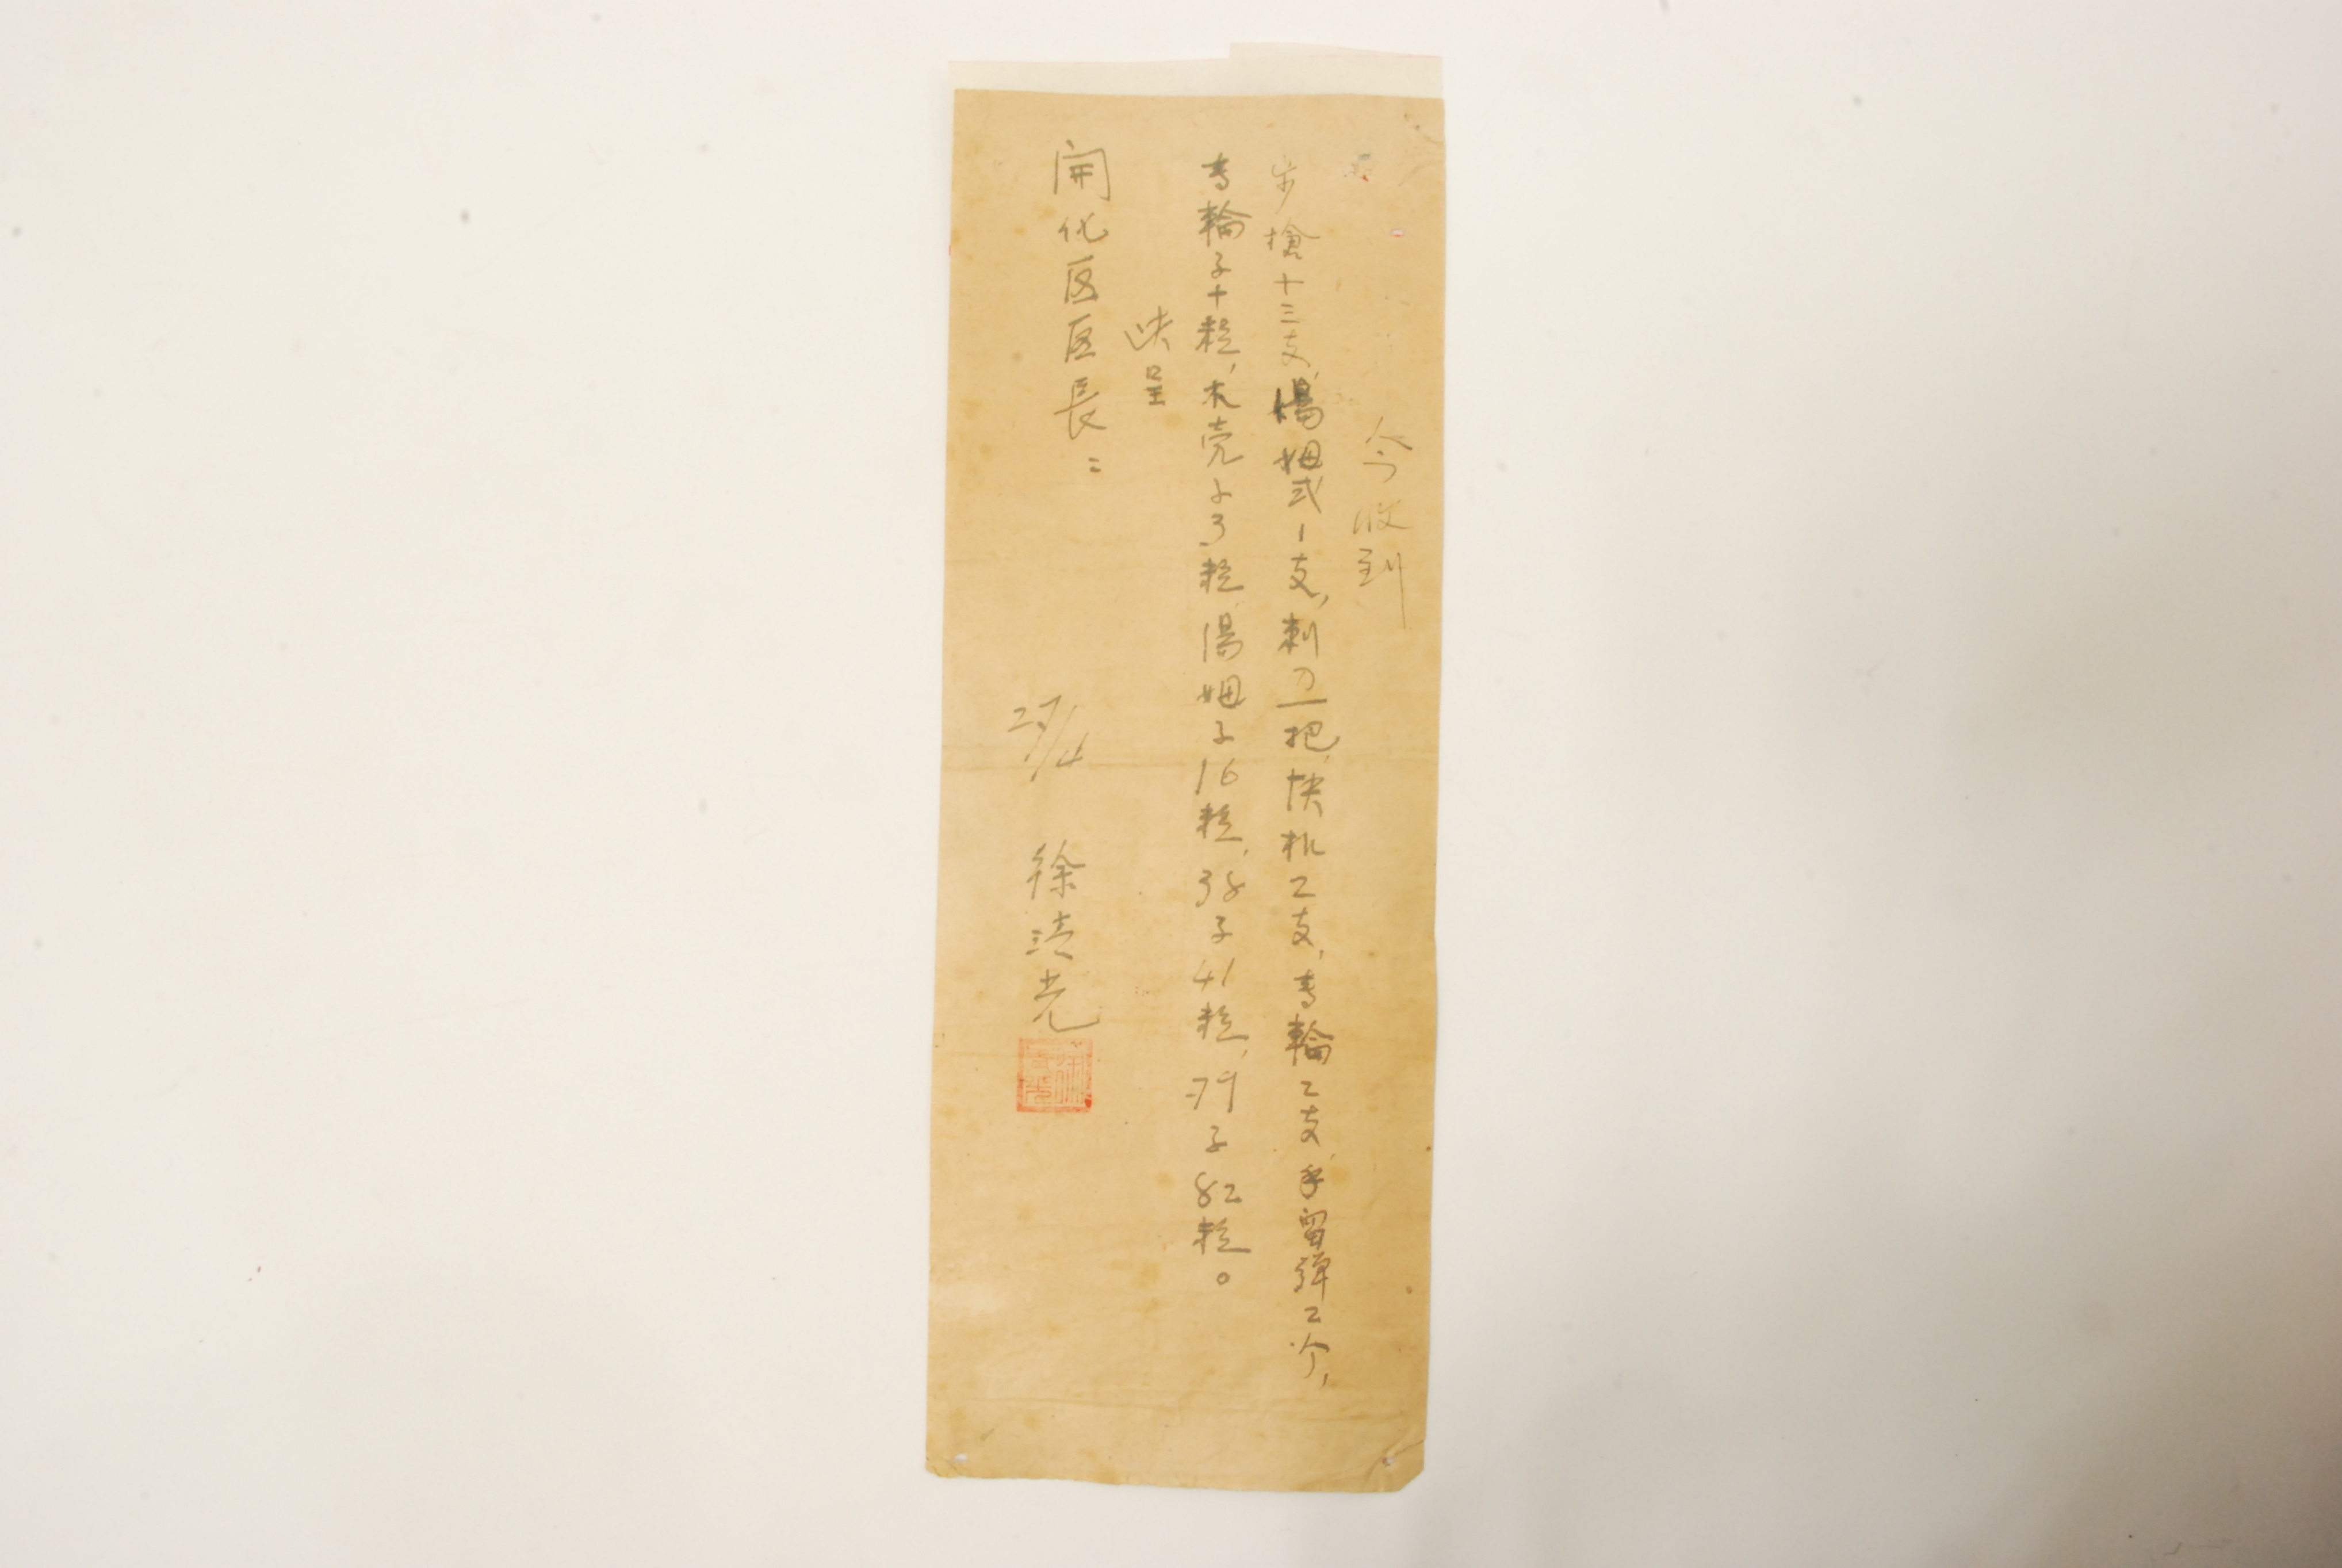 今收到
步槍十三支,湯姆式1支,刺刀一把,快机2支,专輪2支,手留彈2个,
专輪子十粒,木壳子3粒,湯姆子16粒,38子41粒,79子82粒。
呈
開化区区長:
27/4
徐清光